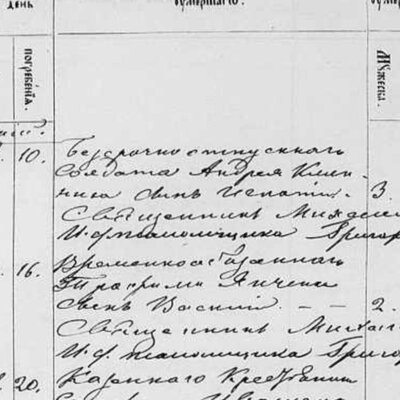 день
умершаго.
погребенія.
Мужеска.
10. Безсрочноотпускнаго
Солдата Андрея Клим-
сынъ Игнатій. 3.
Священникъ Михаилъ
И. д. псаломщика Григор
16. Временнообязаннаго
Трофима
сынъ Василій. — — 2.
Священникъ Михаил
И. д. псаломщика Григор
20. Казеннаго Крестьянина